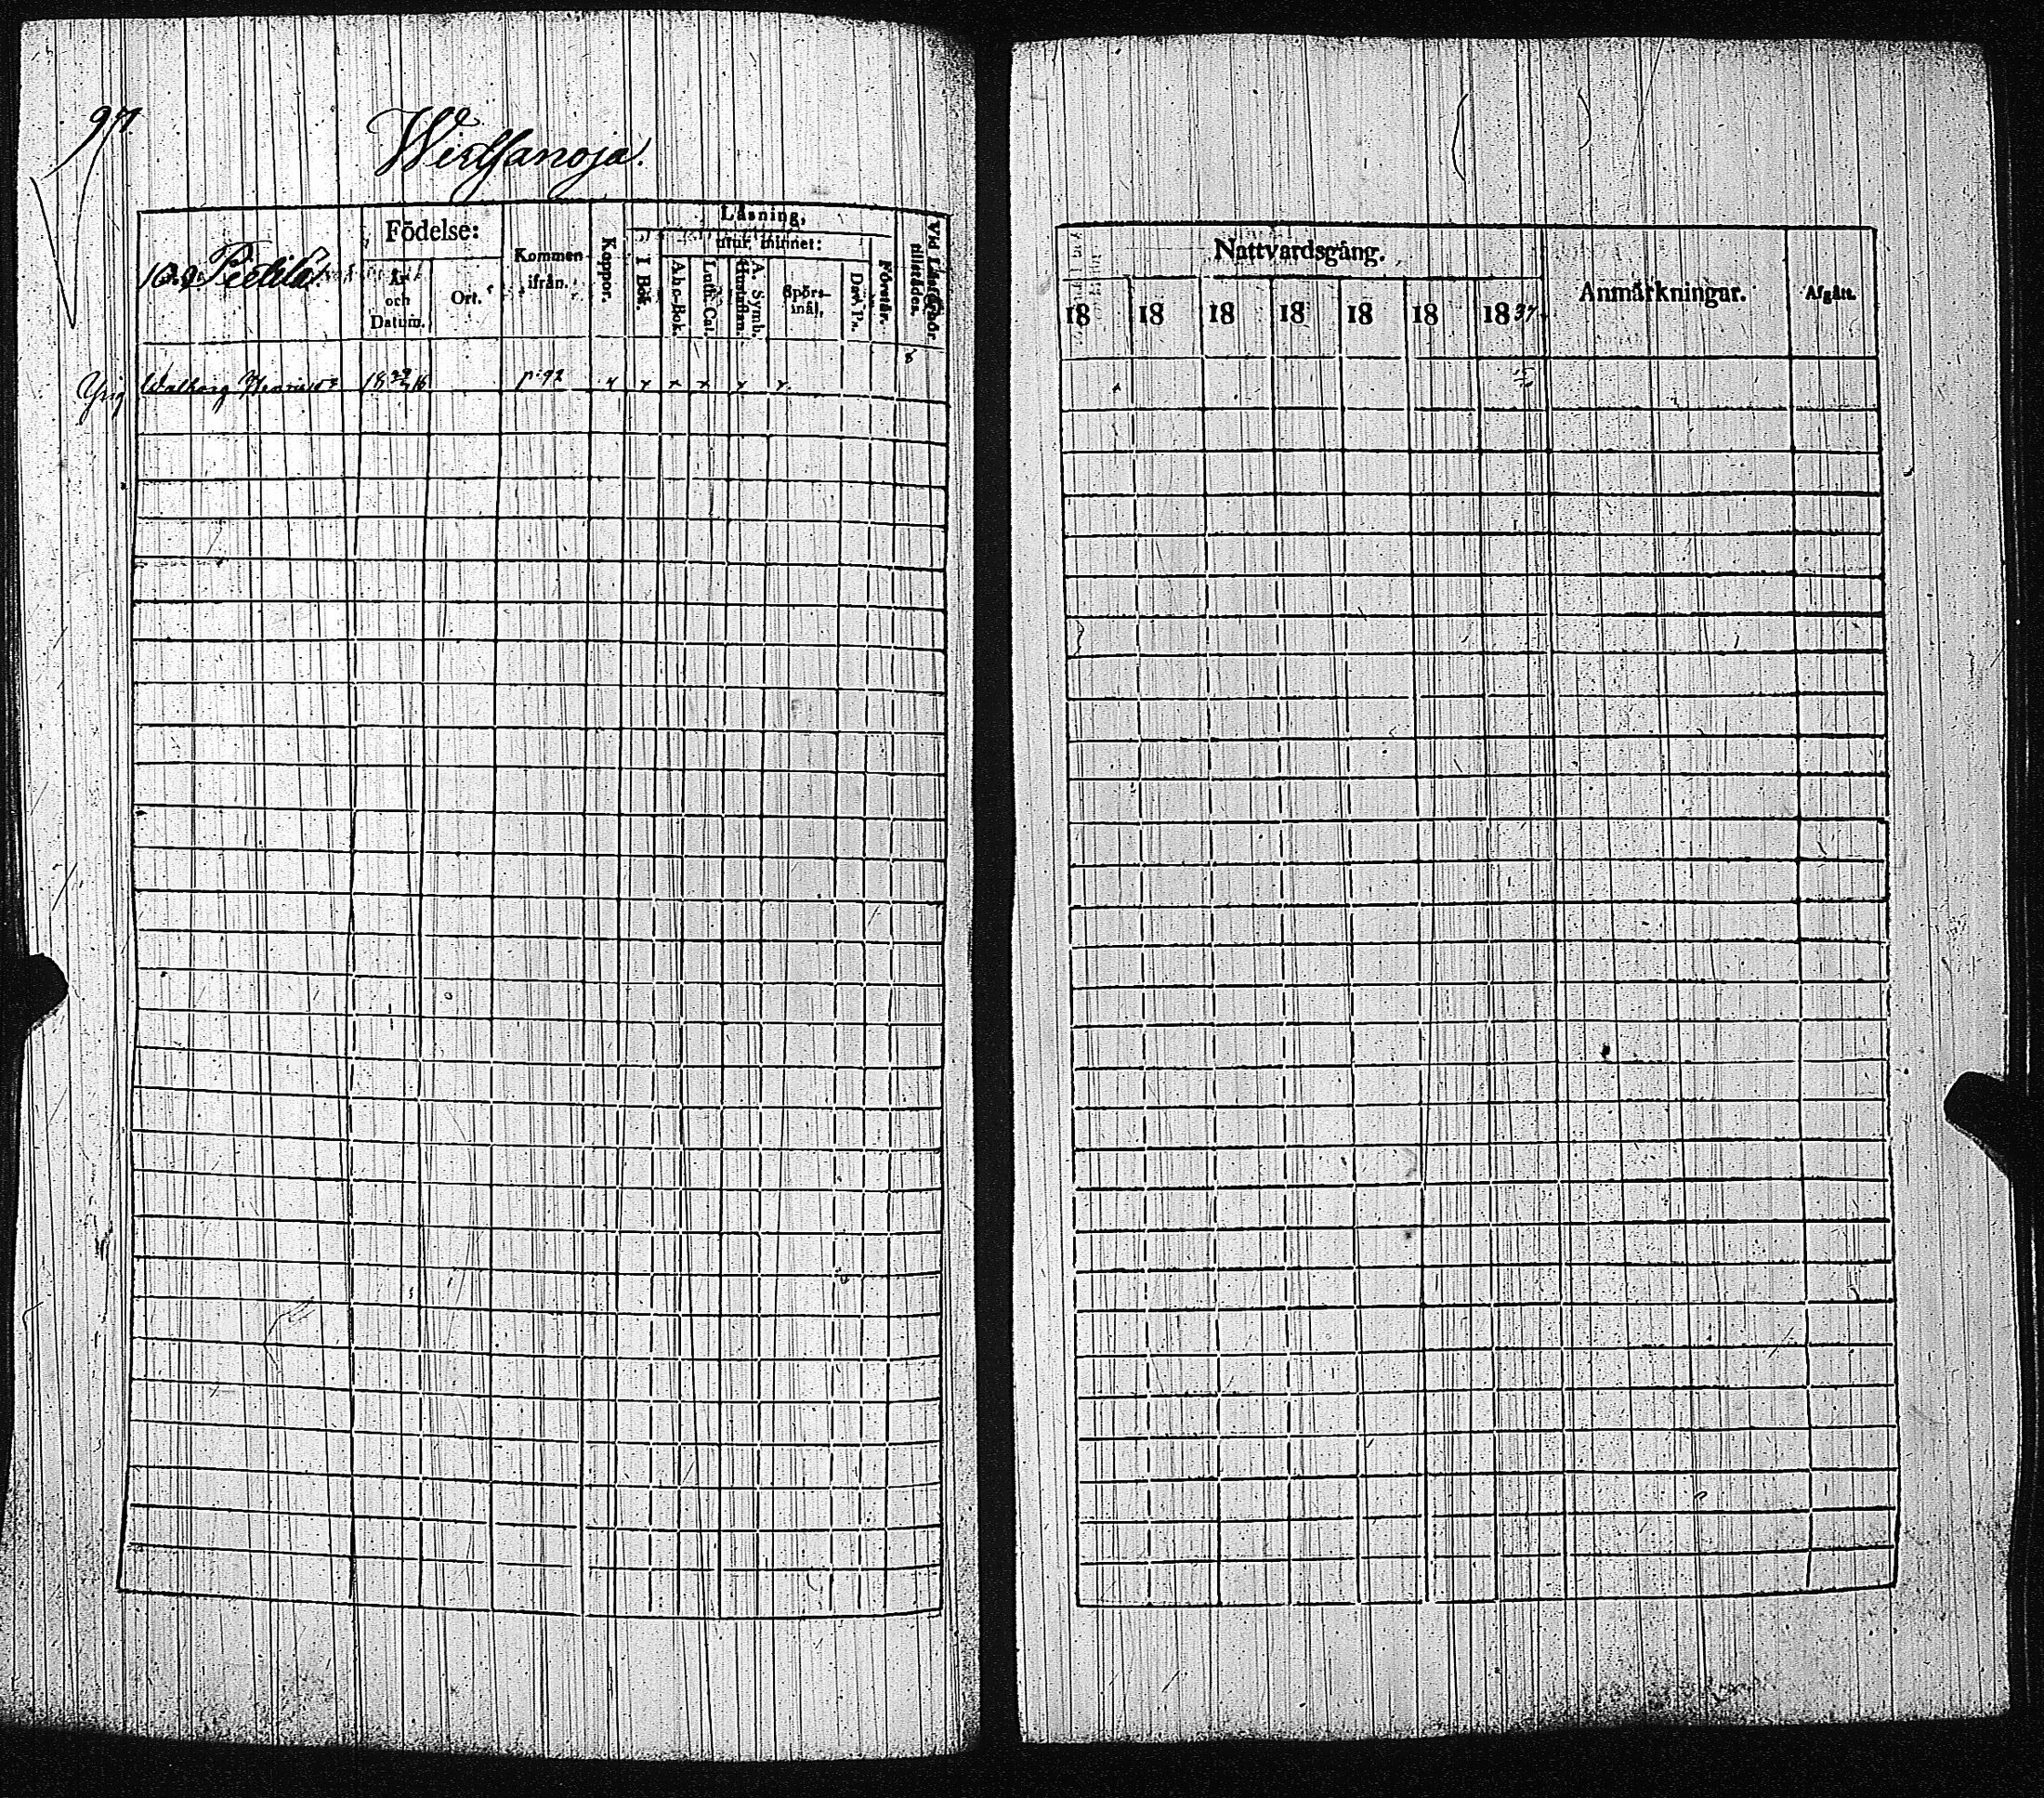 97.
Wirtsanoja.
Födelse:
År och Datum.
Ort.
Kommen ifrån.
Koppor.
Läsning,
I Bok.
utur minnet:
A.b.c-Bok.
Luth. Cat.
A. Symb.
Spörsmål.
Dav. Ps.
Förstår.
Vid Läsförhör tillstädes.
Walborg Henricsdr 18 16 p. 92 x x x x x x
Nattvardsgång.
18 18 18 18 18 18 1837.
Anmärkningar.
Afgått.